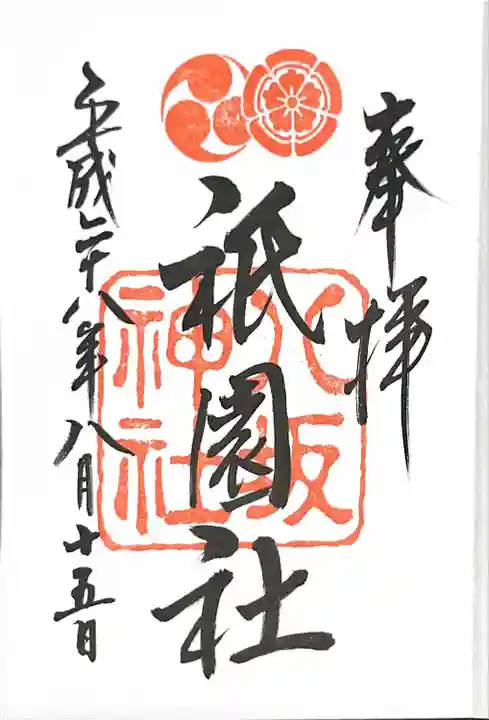 奉拝
八坂神社
祇園社
平成二十八年八月十五日